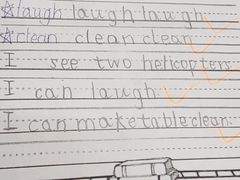 ☆laugh laugh laugh
☆clean clean clean
I see two helicopters.
I can laugh.
I can make table clean.